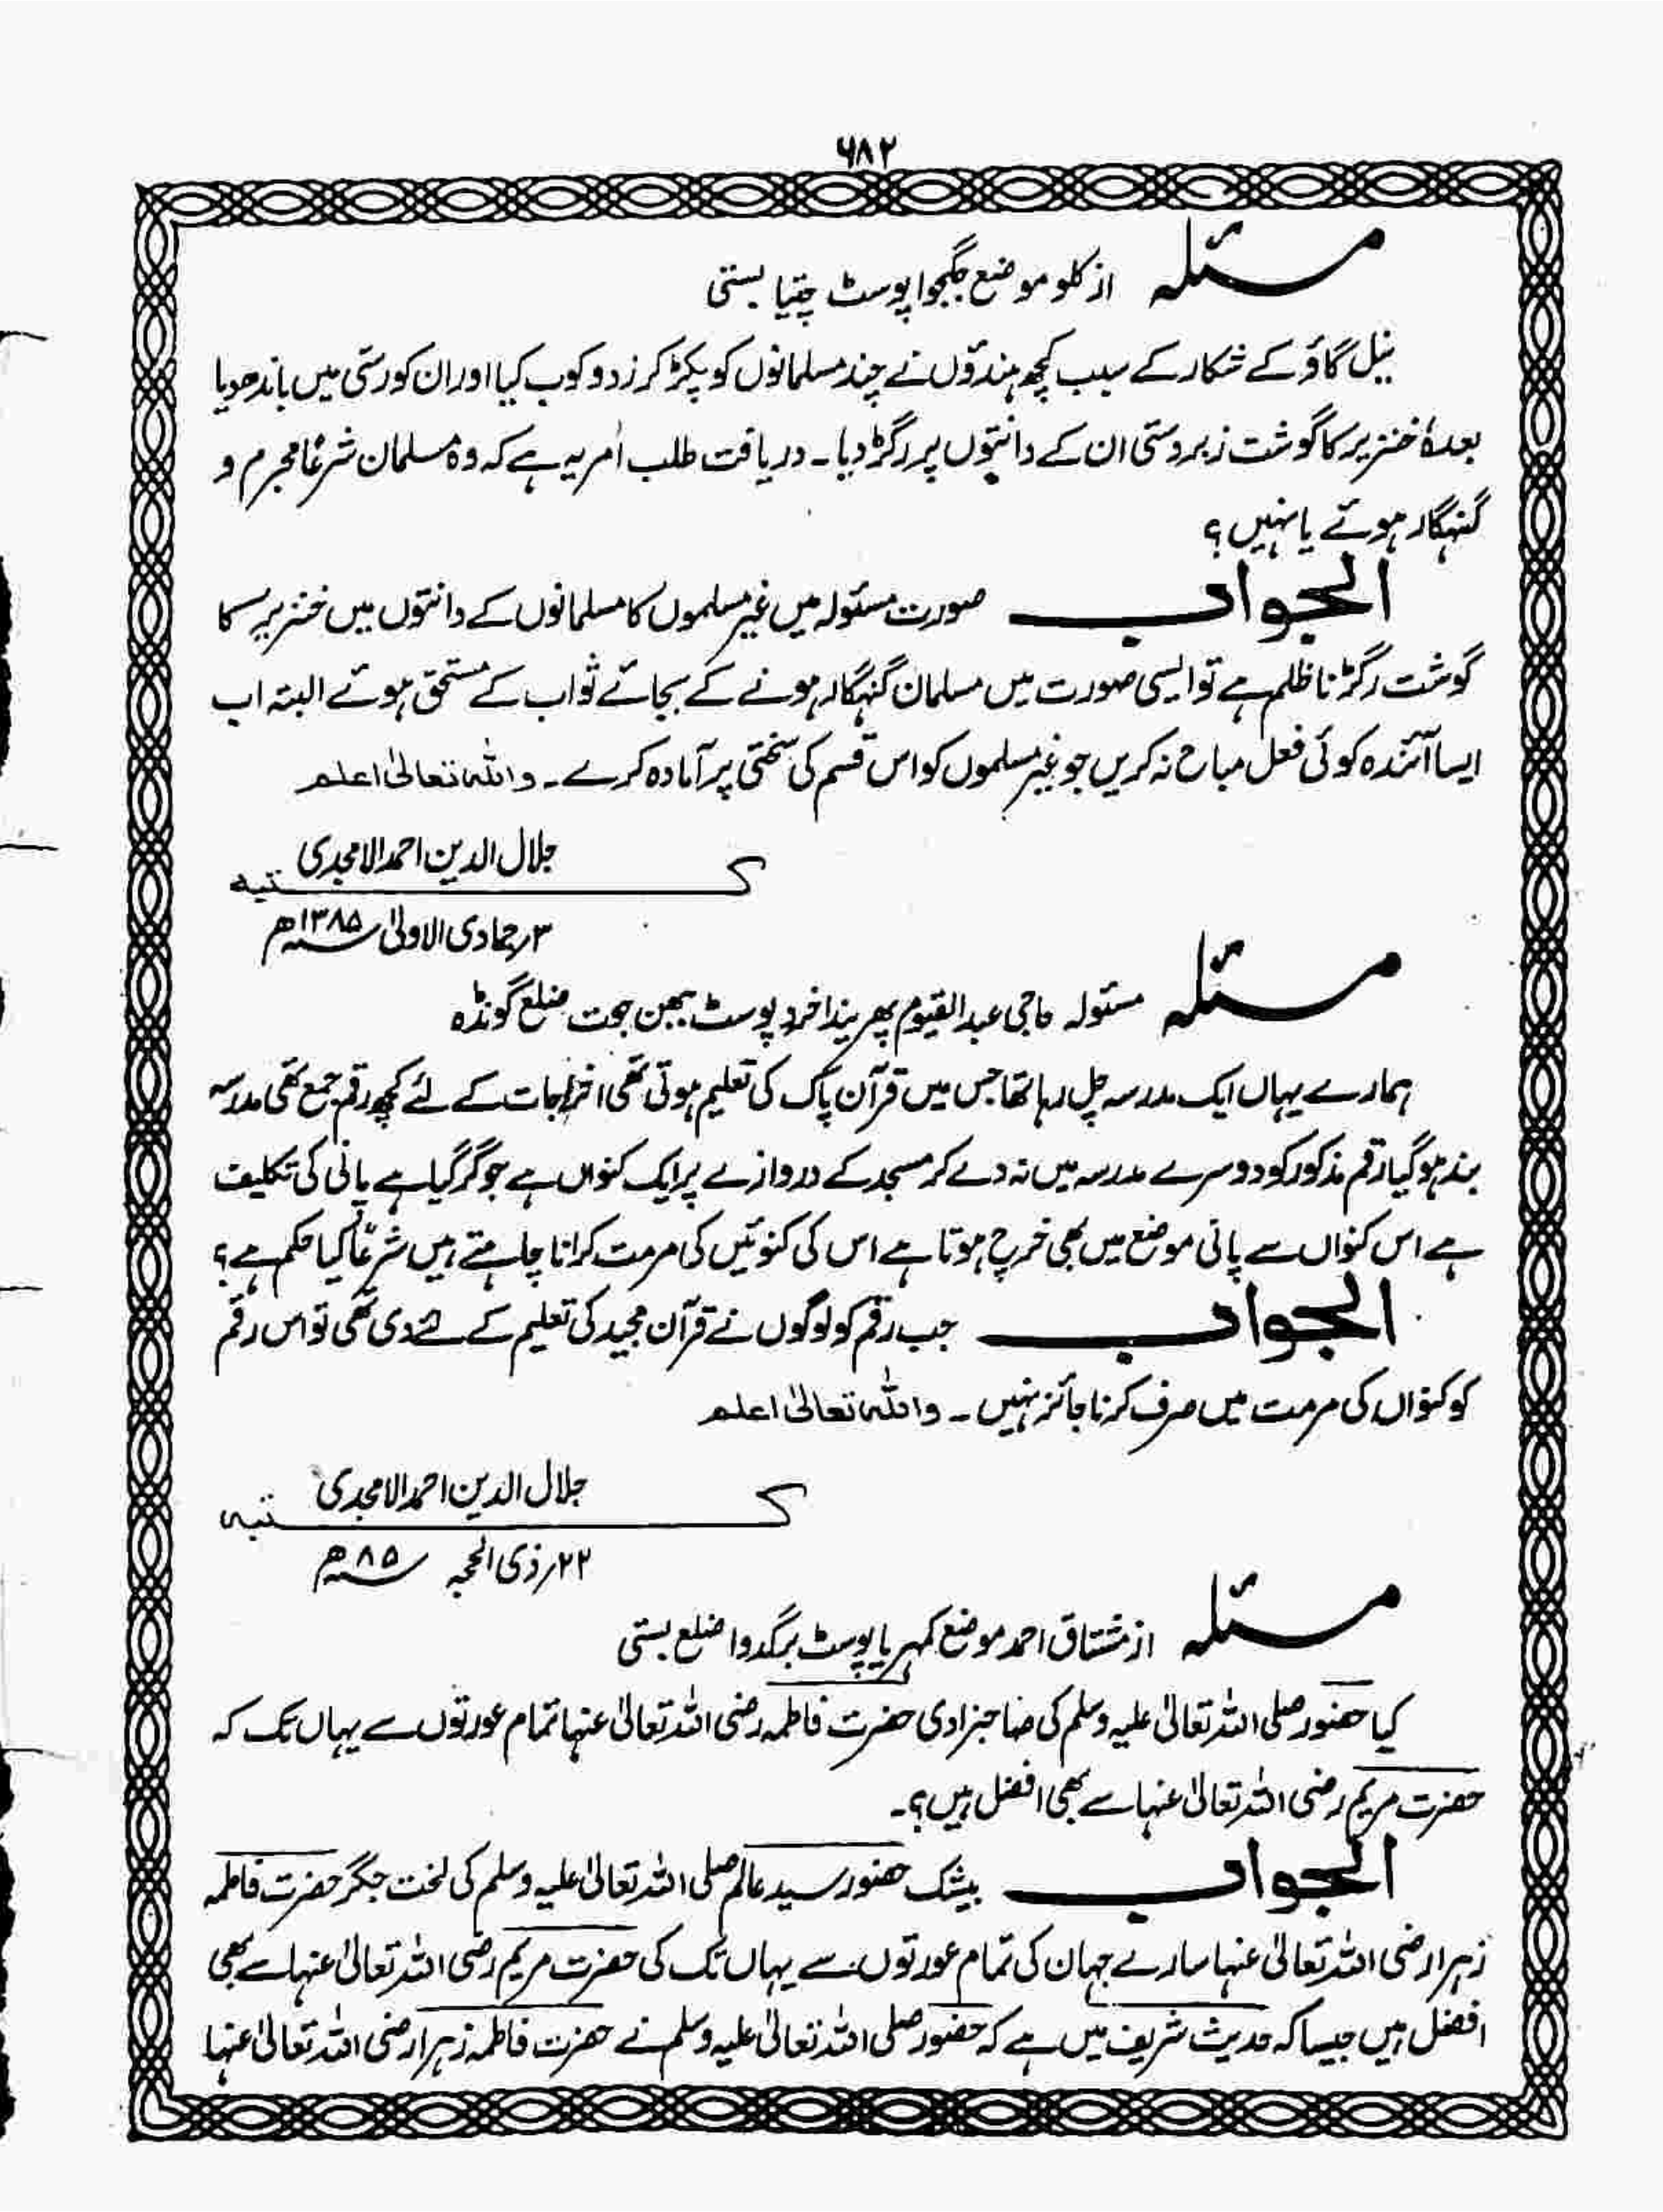 ۶۸۲
مسئلہ از کلو موضع جگجوا پوسٹ چتیا بستی
نیل گاؤ کے شکار کے سبب کچھ ہندؤں نے چند مسلمانوں کو پکڑ کر زد و کوب کیا اور ان کو رسّی میں باندھ دیا
بعدہٗ خنزیر کا گوشت زبردستی ان کے دانتوں پر رگڑ دیا۔ دریافت طلب اَمر یہ ہے کہ وہ مسلمان شرعًا مجرم و
گنہگار ہوئے یا نہیں؟
الجواب صورت مسئولہ میں غیر مسلموں کا مسلمانوں کے دانتوں میں خنزیر کا
گوشت رگڑنا ظلم ہے تو ایسی صورت میں مسلمان گنہگار ہونے کے بجائے ثواب کے مستحق ہوئے البتہ اب
ایسا آئندہ کوئی فعل مباح نہ کریں جو غیر مسلموں کو اس قسم کی سختی پر آمادہ کرے۔ واللہ تعالیٰ اعلم
جلال الدین احمد الامجدی
کتبہ
۳؍ جمادی الاولیٰ ۱۳۸۵ھ
مسئلہ مسئولہ حاجی عبدالقیوم پھریندا خرد پوسٹ بھجن جوت ضلع گونڈہ
ہمارے یہاں ایک مدرسہ چل رہا تھا جس میں قرآن پاک کی تعلیم ہوتی تھی اخراجات کے لئے کچھ رقم جمع تھی مدرسہ
بند ہو گیا رقم مذکور کو دوسرے مدرسہ میں نہ دے کر مسجد کے دروازے پر ایک کنواں ہے جو گر گیا ہے پانی کی تکلیف
ہے اس کنواں سے پانی موضع میں بھی خرچ ہوتا ہے اس کی کنوئیں کی مرمت کرانا چاہتے ہیں شرعًا کیا حکم ہے؟
الجواب جب رقم کو لوگوں نے قرآن مجید کی تعلیم کے لئے دی تھی تو اس رقم
کو کنواں کی مرمت میں صرف کرنا جائز نہیں۔ واللہ تعالیٰ اعلم
جلال الدین احمد الامجدی
کتبہ
۲۲؍ ذی الحجہ ۸۵ھ
مسئلہ از مشتاق احمد موضع کمہریا پوسٹ برگدوا ضلع بستی
کیا حضور صلی اللہ تعالیٰ علیہ وسلم کی صاحبزادی حضرت فاطمہ رضی اللہ تعالیٰ عنہا تمام عورتوں سے یہاں تک کہ
حضرت مریم رضی اللہ تعالیٰ عنہا سے بھی افضل ہیں؟۔
الجواب بیشک حضور سید عالم صلی اللہ تعالیٰ علیہ وسلم کی لخت جگر حضرت فاطمہ
زہرا رضی اللہ تعالیٰ عنہا سارے جہان کی تمام عورتوں سے یہاں تک کی حضرت مریم رضی اللہ تعالیٰ عنہا سے بھی
افضل ہیں جیسا کہ حدیث شریف میں ہے کہ حضور صلی اللہ تعالیٰ علیہ وسلم نے حضرت فاطمہ زہرا رضی اللہ تعالیٰ عنہا